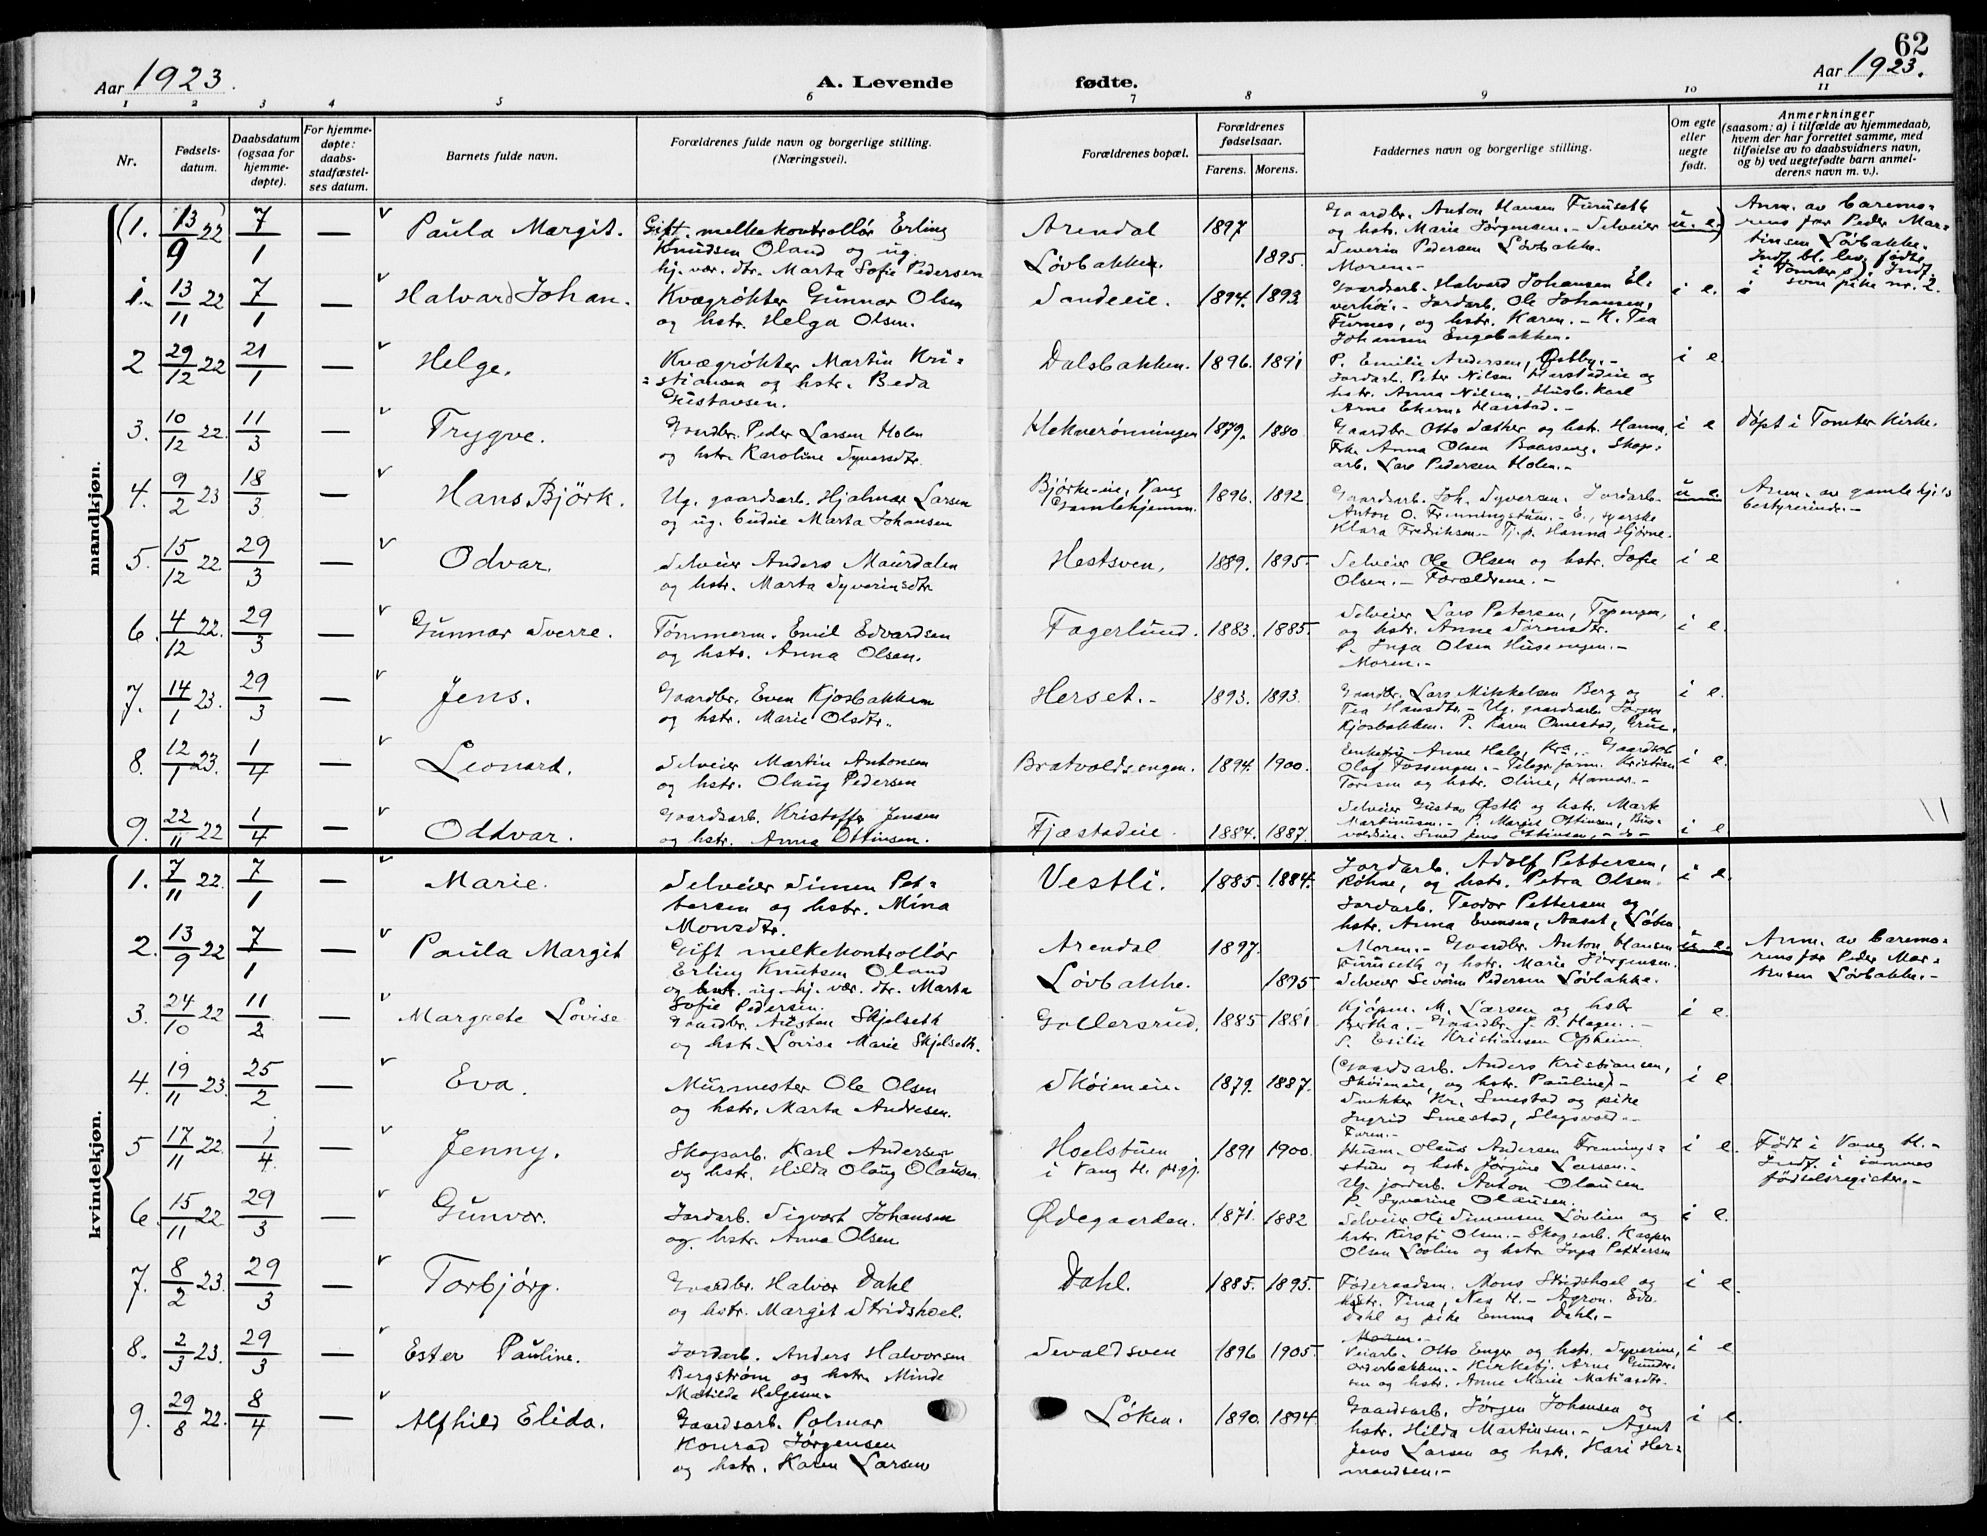 62
Aar 1923.
A. Levende fødte.
Aar 1923.
1 2 3 4 5 6 7 8 9 10 11
Nr.
Fødsels-
datum.
Daabsdatum
(ogsaa for
hjemme-
døpte).
For hjemme-
døpte:
daabs-
stadfæstel-
ses datum.
Barnets fulde navn.
Forældrenes fulde navn og borgerlige stilling.
(Næringsvei).
Forældrenes bopæl.
Forældrenes
fødselsaar.
Farens. Morens.
Faddernes navn og borgerlige stilling.
Om egte
eller
uegte
født.
Anmerkninger
(saasom: a) i tilfælde av hjemmedaab,
hvem der har forrettet samme, med
tilføielse av to daabsvidners navn,
og b) ved uegtefødte barn anmel-
derens navn m. v.).
mandkjøn.
(1. 13/9 22 7/1 — Paula Margit. Gift. melkekontrollør Erling
Knudsen Oland og ug.
hj. vær. dtr. Marta Sofie Pedersen
Arendal 1897
Løvbakken. 1895.
Gaardbr. Anton Hansen Furuseth
og hstr. Marie Jørgensen. - Selveier
Severin Pedersen Løvbakke.
Moren.-
u. e.)
Anm. av baremo-
rens far Peder Mar-
tinsen Løvbakke.
Indf. bl. lev. fødte
i Tomter s). Indf.
som pike nr. 2.
1. 13/11 22 7/1 — Halvard Johan. Kvægrøkter Gunnar Olsen
og hstr. Helga Olsen.
Sandeeie. 1894. 1893
Gaardarb. Halvard Johansen El-
verhøi. - Jordarb. Ole Johansen,
Furnes, og hstr. Karen. - K. Tea
Johansen Engebakken.
i e.
2 29/12 22 21/1 — Helge. Kvægrøkter Martin Kri=
=stiansen og hstr. Beda
Gustavsen.
Dalsbakken. 1896. 1891
P. Emilie Andersen, Østby.-
Jordarb. Peter Nilsen Harstadeie og
hstr. Anna Nilsen. Husb. karl
Arne Harstad.-
i e
3. 10/12 22. 11/3 — Trygve. Gaardbr. Peder Larsen Holm
og hstr. Karoline Syversdtr.
Hekverønningen 1879. 1880
Gaardbr. Otto Sæther og hstr. Hanna.
Frk. Anna Olsen Skog-
arb. Lars Pedersen Holm.-
i e
Døpt i Tomter Kirke.
4. 9/2 23 18/3 — Hans Björk. Ug. gaardsarb. Hjalmar Larsen
og ug. budeie Marta Johansen
Bjørke-eie, Vang
Gamlehjemm. 1896. 1892
Gaardsarb. Joh. Syversen. Jordarb.
Anton O. Frenningstuen. - E.,
Klara Fredriksen. Tj. p. Hanna Hjørne.
u. e.
Anm. av gamlehj.'s
bestyrerinde.-
5. 15/12 22. 29/3 — Odvar. Selveier Anders Maurdalen
og hstr. Marta Syverinsdtr
Hestsven, 1889. 1895-
Selveier Ole Olsen og hstr. Sofie
Olsen. - Forældrene. -
i e
6. 4/12 22. 29/3 — Gunnar Sverre. Tømmerm. Emil Edvardsen
og hstr. Anna Olsen.
Fagerlund. 1883. 1885.
Selveier Lars Petersen, Topengen,
og hstr. Anne Sørensdtr.
P. Inga Olsen Husengen. -
Moren.-
i e.
7. 14/1 23. 29/3 — Jens. Gaardbr. Even Kjosbakken
og hstr. Marie Olsdtr.
Herset.- 1893. 1893
Gaardbr. Lars Mikkelsen Berg og
Tea Hansdtr - Ug. gaardsarb. Jørgen
Kjosbakken. P. Karen Ornestad, Grue.
i e.
8. 12/1 23. 1/4 — Leonard. Selveier Martin Antonsen
og hstr. Olaug Pedersen
Bratvoldsengen. 1894. 1900.
Enkefru Anne Kra. - Gaardsb
Olaf Fossengen. - Telegr. form. Kristian
Toresen og hstr. Oline, Hamar.-
i e.
9. 22/11 22 1/4 — Oddvar. Gaardsarb. Kristoffer Jensen
og hstr. Anna Ottinsen.
Fjæstadeie. 1884. 1887.
Selveier Gustav Østli og hstr. Marte
Martinusen. - P. Margit Ottinsen,
Smed Jens Ottinsen, - do -
i e
kvindekjøn.
1. 7/11 22. 7/1 — Marie. Selveier Simen Pet=
tersen og hstr. Mina
Monsdtr.
Vestli. 1885. 1884.
Jordarb. Adolf Pettersen,
Røhne, og hstr. Petra Olsen.
Jordarb. Teodor Pettersen og
hstr. Anna Evensen, Aaset, Løten
i e.
2. 13/9 22 7/1 — Paula Margit Gift melkekontrollør
Erling Knutsen Oland
og ug. hj. vær. dtr. Marta
Sofie Pedersen.
Arendal 1897.
Løvbakke. 1895
Moren. - Gaardbr. Anton Hansen
Furuseth og hstr. Marie Jørgensen.
Selveier Severin Pedersen Løvbakke.
u. e.
Anm. av baremo-
rens far Peder Mar-
tinsen Løvbakke.-
3. 24/10 22 11/2 — Margrete Lovise Gaardbr. Austen Skjelseth
og hstr. Lovise Marie Skjelseth.
Gollersrud. 1885 1881
Kjøpm. M. Larsen og hstr
Bertha. - Gaardbr. J. B. Hagen. -
S. Emilie Kristiansen Opheim
i e.
4. 19/11 23. 25/2 — Eva. Murmester Ole Olsen
og hstr. Marta Andresen.
Skøieneie. 1879. 1887.
(Gaardsarb. Anders Kristiansen,
Skøieneie, og hstr. Pauline) -
Snekker Kr. Smestad og pike
Ingrid Smestad, Slagsvold.
Faren.-
i e
5 17/11 22. 1/4 — Jenny. Skogsarb. Karl Andersen
og hstr. Hilda Olaug Olausen.
Hoelstuen
i Vang H. pgj. 1891 1900
Husm. Olaus Andersen Frennings=
stuen og hstr. Jørgine Larsen.-
Ug. jordarb. Anton Olausen
P. Syverine Olausen.
i e.
Født i Vang H. -
Indf. i sammes
fødselsregister.-
6. 15/11 22. 29/3 — Gunvor. Jordarb. Sigvart Johansen
og hstr. Anna Olsen
Ødegaarden. 1871. 1882
Selveier Ole Simensen Løvlien og
hstr. Kirsti Olsen. - Skogsarb. Kasper
Olsen Løvlien og hstr Inga Pettersen
i e.
7. 8/2 23. 29/3 — Torbjørg. Gaardbr. Halvor Dahl
og hstr. Margit Stridshoel.
Dahl. 1885. 1895-
Føderaadsm. Mons Stridshoel og
hstr. Tina, Nes H. - Agron. Even
Dahl og pike Emma Dahl.-
Moren.-
i e.
8. 2/3 23. 29/3 — Ester Pauline. Jordarb. Anders Halvorsen
Bergstrøm og hstr Minde
Matilda Helgesen.
Sevaldsven 1896 1905-
Veiarb. Otto Enger og hstr. Syverine,
Orderbakken. - Kirketj. Arne Gunder-
sen og hstr. Anne Marie Matiasdtr.
i e
9. 29/8 22. 8/4 — Alfhild Elida. Gaardsarb. Palmar
Konrad Jørgensen
og hstr. Karen Larsen
Løken. 1890. 1894
Gaardsarb. Jørgen Johansen og
hstr. Hilda Martinsen. - Agent
Jens Larsen og hstr. Kari Her=
mandsen.-
i e.